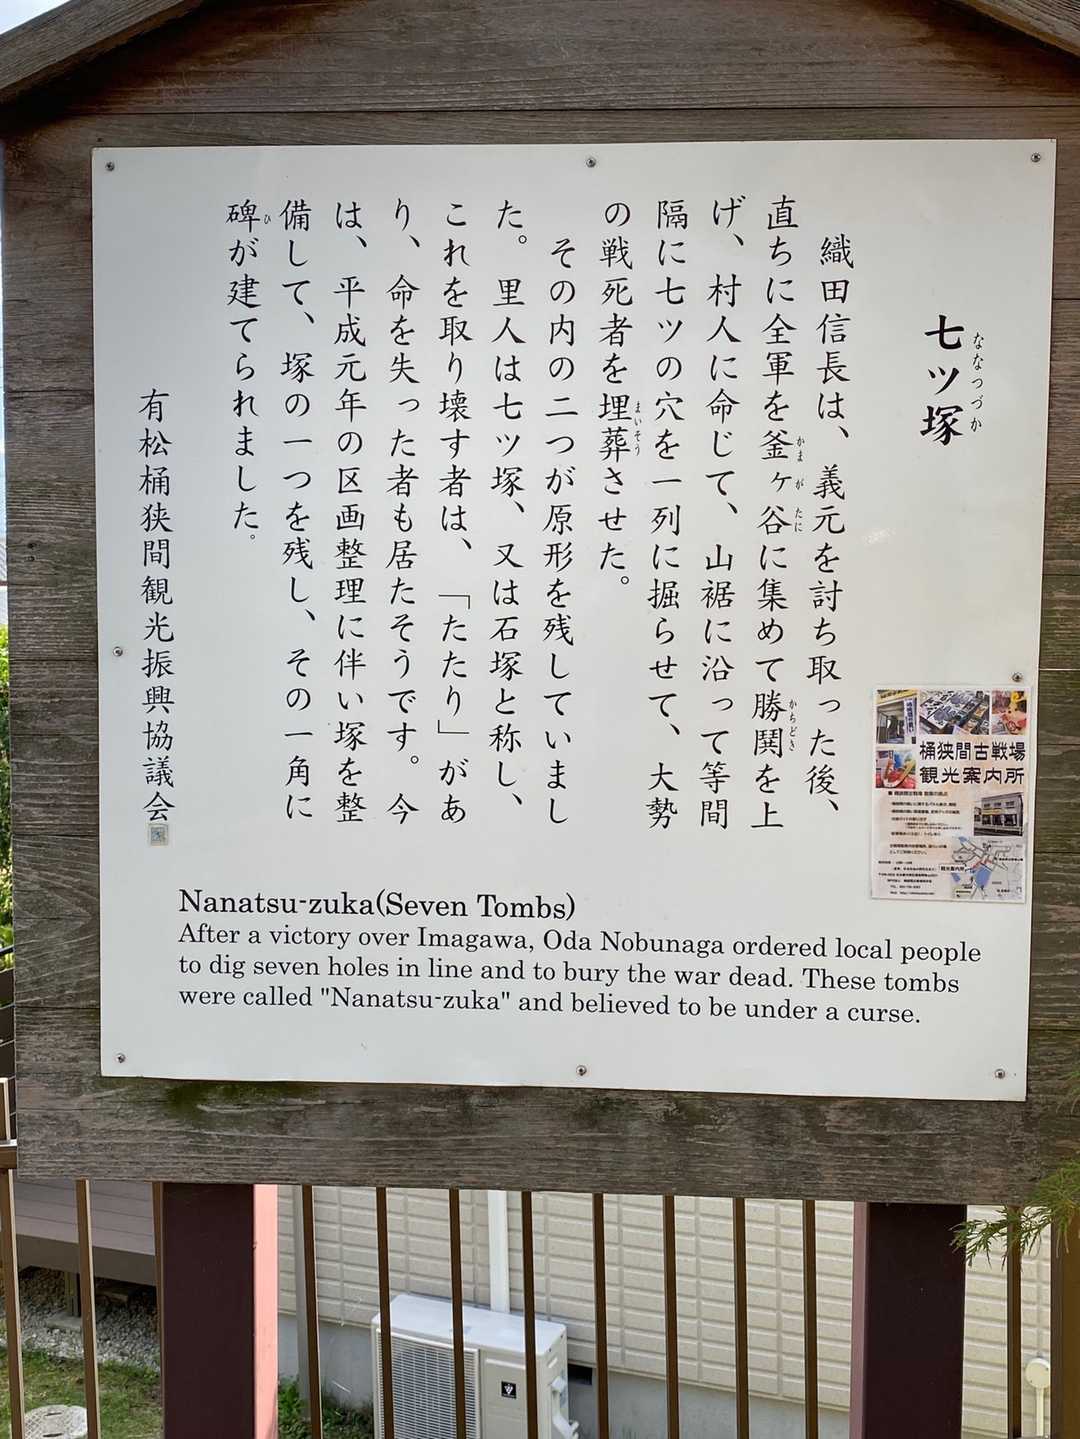 七ツ塚
ななつづか
織田信長は、義元を討ち取った後、
直ちに全軍を釜ヶ谷に集めて勝鬨を上
かま が たに
かちどき
げ、村人に命じて、山裾に沿って等間
隔に七ツの穴を一列に掘らせて、大勢
の戦死者を埋葬させた。
まいそう
その内の二つが原形を残していまし
た。里人は七ツ塚、又は石塚と称し、
これを取り壊す者は、「たたり」があ
り、命を失った者も居たそうです。今
は、平成元年の区画整理に伴い塚を整
備して、塚の一つを残し、その一角に
碑が建てられました。
ひ
有松桶狭間観光振興協議会
Nanatsu-zuka(Seven Tombs)
After a victory over Imagawa, Oda Nobunaga ordered local people
to dig seven holes in line and to bury the war dead. These tombs
were called "Nanatsu-zuka" and believed to be under a curse.
桶狭間古戦場
観光案内所